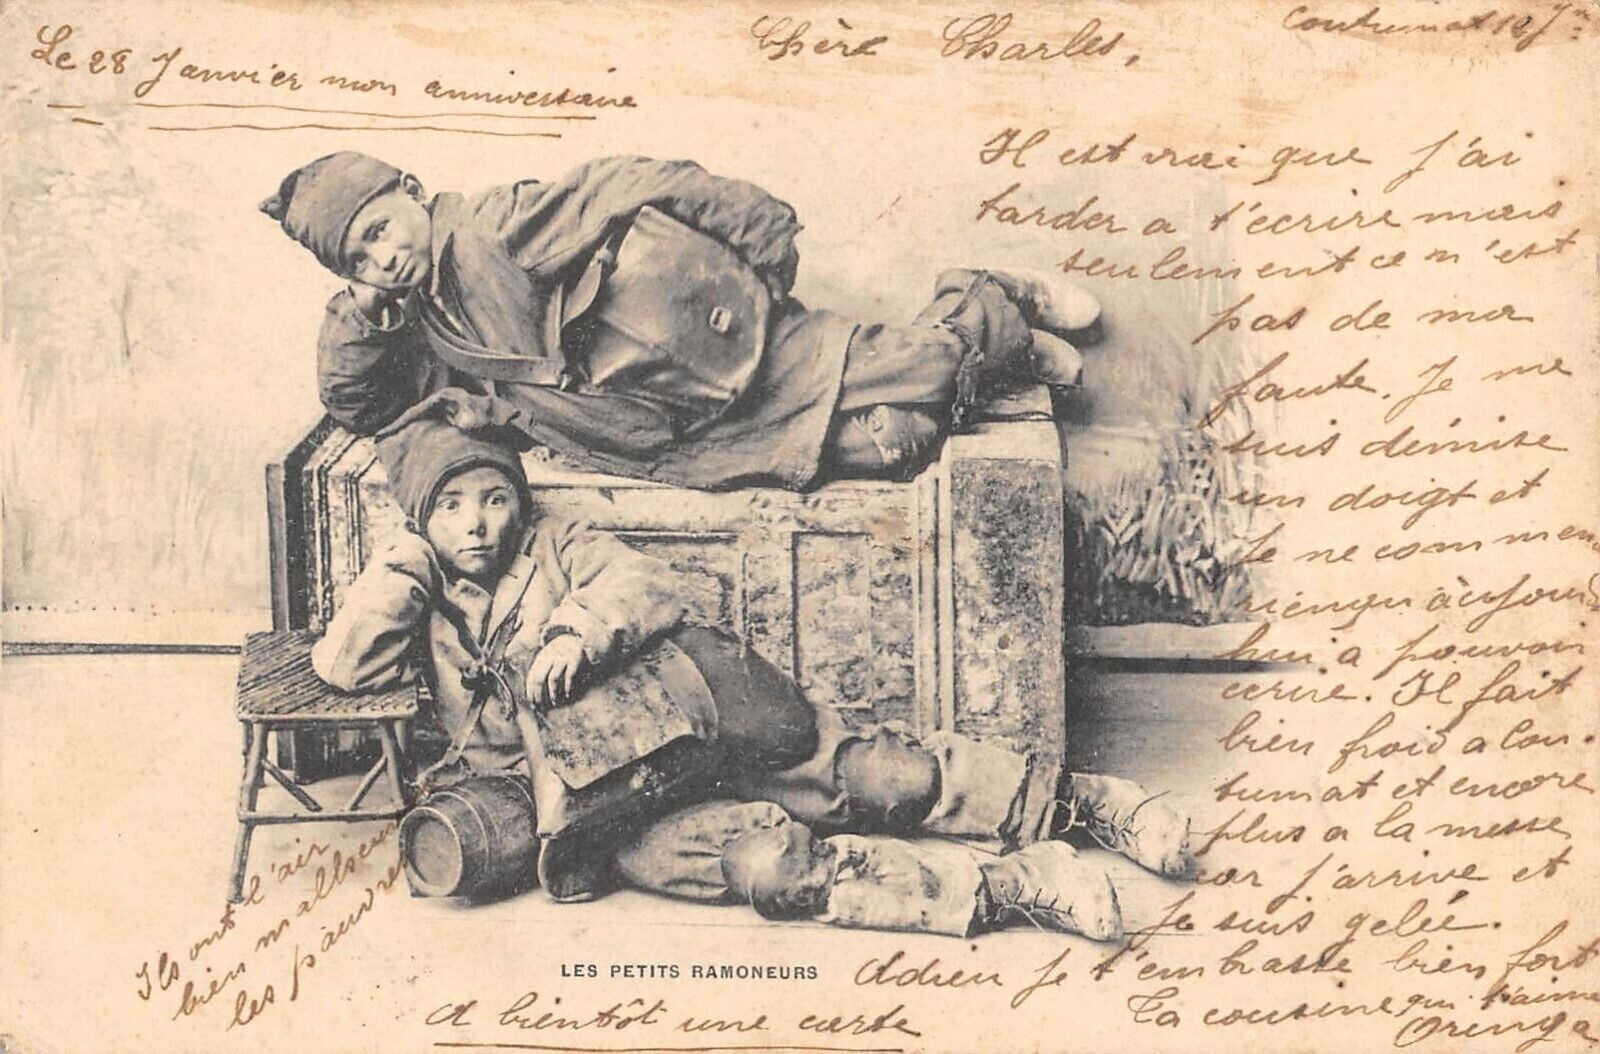 Le 28 Janvier mon anniversaire
Chère Charles,
Coutumat 12 Jer
Il est vrai que j'ai
tarder a t'ecrire mais
seulement ce n'est
pas de ma
faute. Je me
suis démise
un doigt et
Je ne commen
rien qu'aujourd
hui a pouvoir
ecrire. Il fait
bien froid a Cou-
tumat et encore
plus a la messe
car j'arrive et
Je suis gelée.
Adieu Je t'embrasse bien fort
Ta cousine qui t'aime
Ils ont l'air
bien malheureux
les pauvres
LES PETITS RAMONEURS
A bientôt une carte